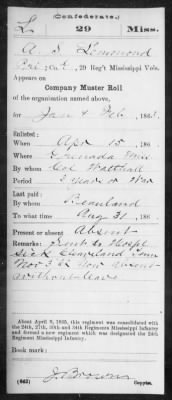 (Confederate.)
L 29 Miss.
A. S. Lemmond
Pvt, Co. C, 29 Reg't Mississippi Vols.
Appears on
Company Muster Roll
of the organization named above,
for Jan & Feb, 1863.
Enlisted:
When Apr 15, 186
Where Grenada Miss
By whom Col Walthall
Period 3 years or War
Last paid:
By whom Beanland
To what time Aug 31, 186
Present or absent Absent
Remarks: Sent to Hospl
Sick Cleaveland Tenn
Nov now absent
without leave
About April 9, 1865, this regiment was consolidated with
the 24th, 27th, 30th and 34th Regiments Mississippi Infantry
and formed a new regiment which was designated the 24th
Regiment Mississippi Infantry.
Book mark:
(642) J. Brown
Copyist.